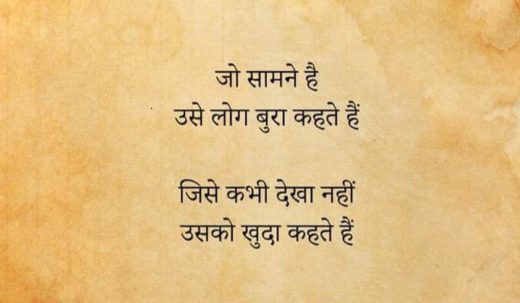 जो सामने है
उसे लोग बुरा कहते हैं
जिसे कभी देखा नहीं
उसको खुदा कहते हैं